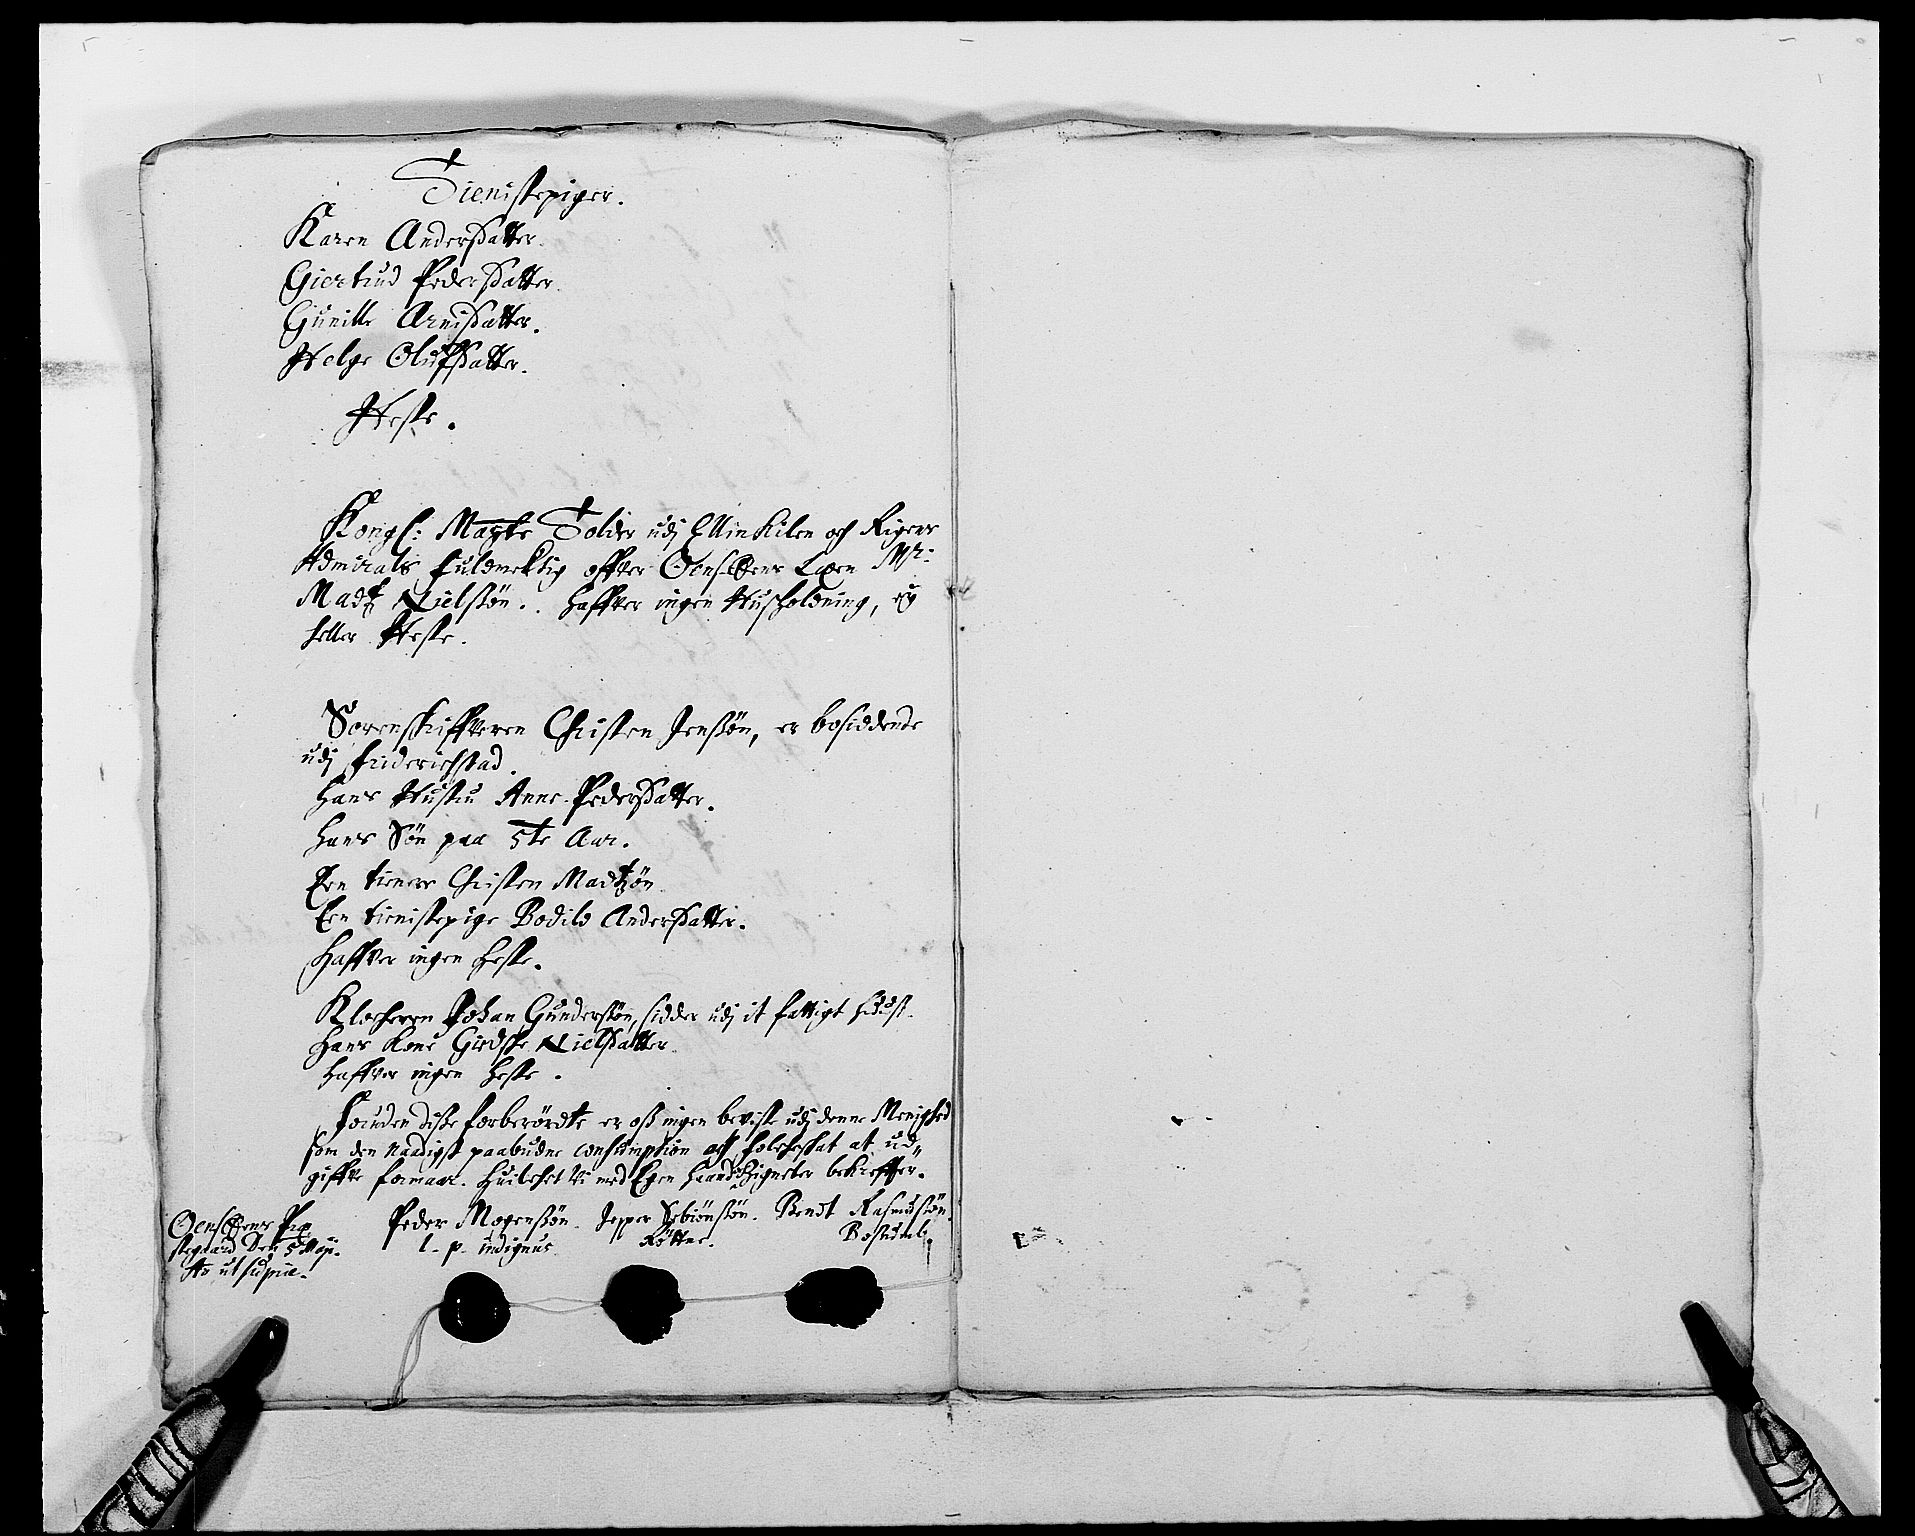 Tienistepiger.
Karen Andersdatter.
Giertrud Pedersdatter.
Gunille Arnisdatter.
Helge Olufsdatter.
Heste.
Kongl: Maytz Tolder udj Ellinkilen och Rigens
Admirals fuldmektig offver Oens Læn Mr:
Madtz Nielssøn.. haffver ingen Husholdning, ey
heller Heste.
Sorenschriffveren Christen Jenssøn, er bosiddende
udj Friderichstad.
Hans Hustru Anne Pedersdatter.
Hans Søn paa 5te Aar.
Een tienere Christen Madtzøn
Een tienistepige Bodild Andersdatter.
Haffver ingen heste.
Klocheren Johan Gunderssøn, sidder udj it fattigt Huust.
Hans Kone Giedske Nielsdatter
haffver ingen heste.
Foruden disse forberørdte er oss ingen beviste udj denne Menighed
som den naadigst paabudne consumption och folcheskat at ud-
giffve formaar. Huilchet vi med Egen haand oc Zigneter bekreffter.
Peder Mogenssøn. Jepper Sebiønssøn. Bendt Rasmussøn.
l. p. indignus
Den 5 Maji.
Ao ut supra.